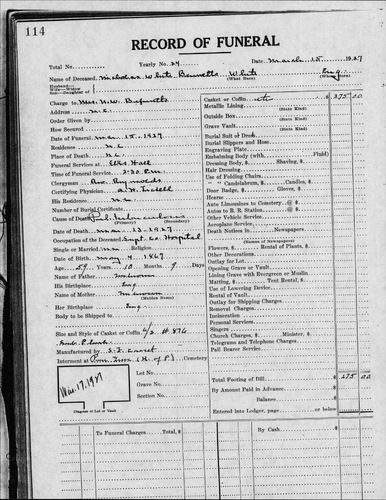 114
RECORD OF FUNERAL
Total No. Yearly No. 24 Date March 15 1927
Name of Deceased Nicholas White Bennetts White Eng.
(What Race) (Where Born)
Husband—
Wife—Widow
Son—Daughter of
Charge to Mrs. N.W. Bennetts
Address N.C.
Order Given by
How Secured
Date of Funeral Mar. 15, 1927
Residence N.C.
Place of Death N.C.
Funeral Services at Elks Hall
Time of Funeral Service 2:30 P.M.
Clergyman Rev. Reynolds
Certifying Physician
His Residence N.C.
Number of Burial Certificate
Cause of Death Pul. Tuberculosis
(Primary) (Secondary)
Date of Death Mar. 13 1927
Occupation of the Deceased Supt. Co. Hospital
Single or Married Religion
Date of Birth May 4 1867
Age 59 Years 10 Months 9 Days
Name of Father Unknown
His Birthplace Eng
Name of Mother Unknown
(Maiden Name)
Her Birthplace Eng
Body to be Shipped to
Size and Style of Casket or Coffin
Manufactured by
Interment at (K. of P.) Cemetery
Lot No.
Grave No.
Section No.
Mar. 17, 1927
Diagram of Lot or Vault
Casket or Coffin etc $ 375 00
(State Kind)
Metallic Lining
(State Kind)
Outside Box
(State Kind)
Grave Vault
(State Kind)
Burial Suit or Dress
Burial Slippers and Hose
Engraving Plate
Embalming Body (with Fluid)
Dressing Body, $ Shaving, $
Hair Dressing
Use of Folding Chairs, $
" " Candelabrum, $ Candles, $
Door Badge, $ Gloves, $
Hearse
Auto Limousines to Cemetery @ $
Autos to R. R. Station @ $
Other Vehicle Service
Aeroplane Service
Death Notices in Newspapers
(Names of Newspapers)
Flowers, $ Rental of Plants, $
Other Decorations
Outlay for Lot
Opening Grave or Vault
Lining Grave with Evergreen or Muslin
Matting, $ Tent Rental, $
Use of Lowering Device
Rental of Vault
Outlay for Shipping Charges
Removal Charges
Incineration
Personal Services
Singers
Church Charges, $ Minister, $
Telegrams and Telephone Charges
Pall Bearer Service
Total Footing of Bill $ 375 00
By Amount Paid in Advance
Balance
Entered into Ledger, page or below
To Funeral Charges Total, $ By Cash $